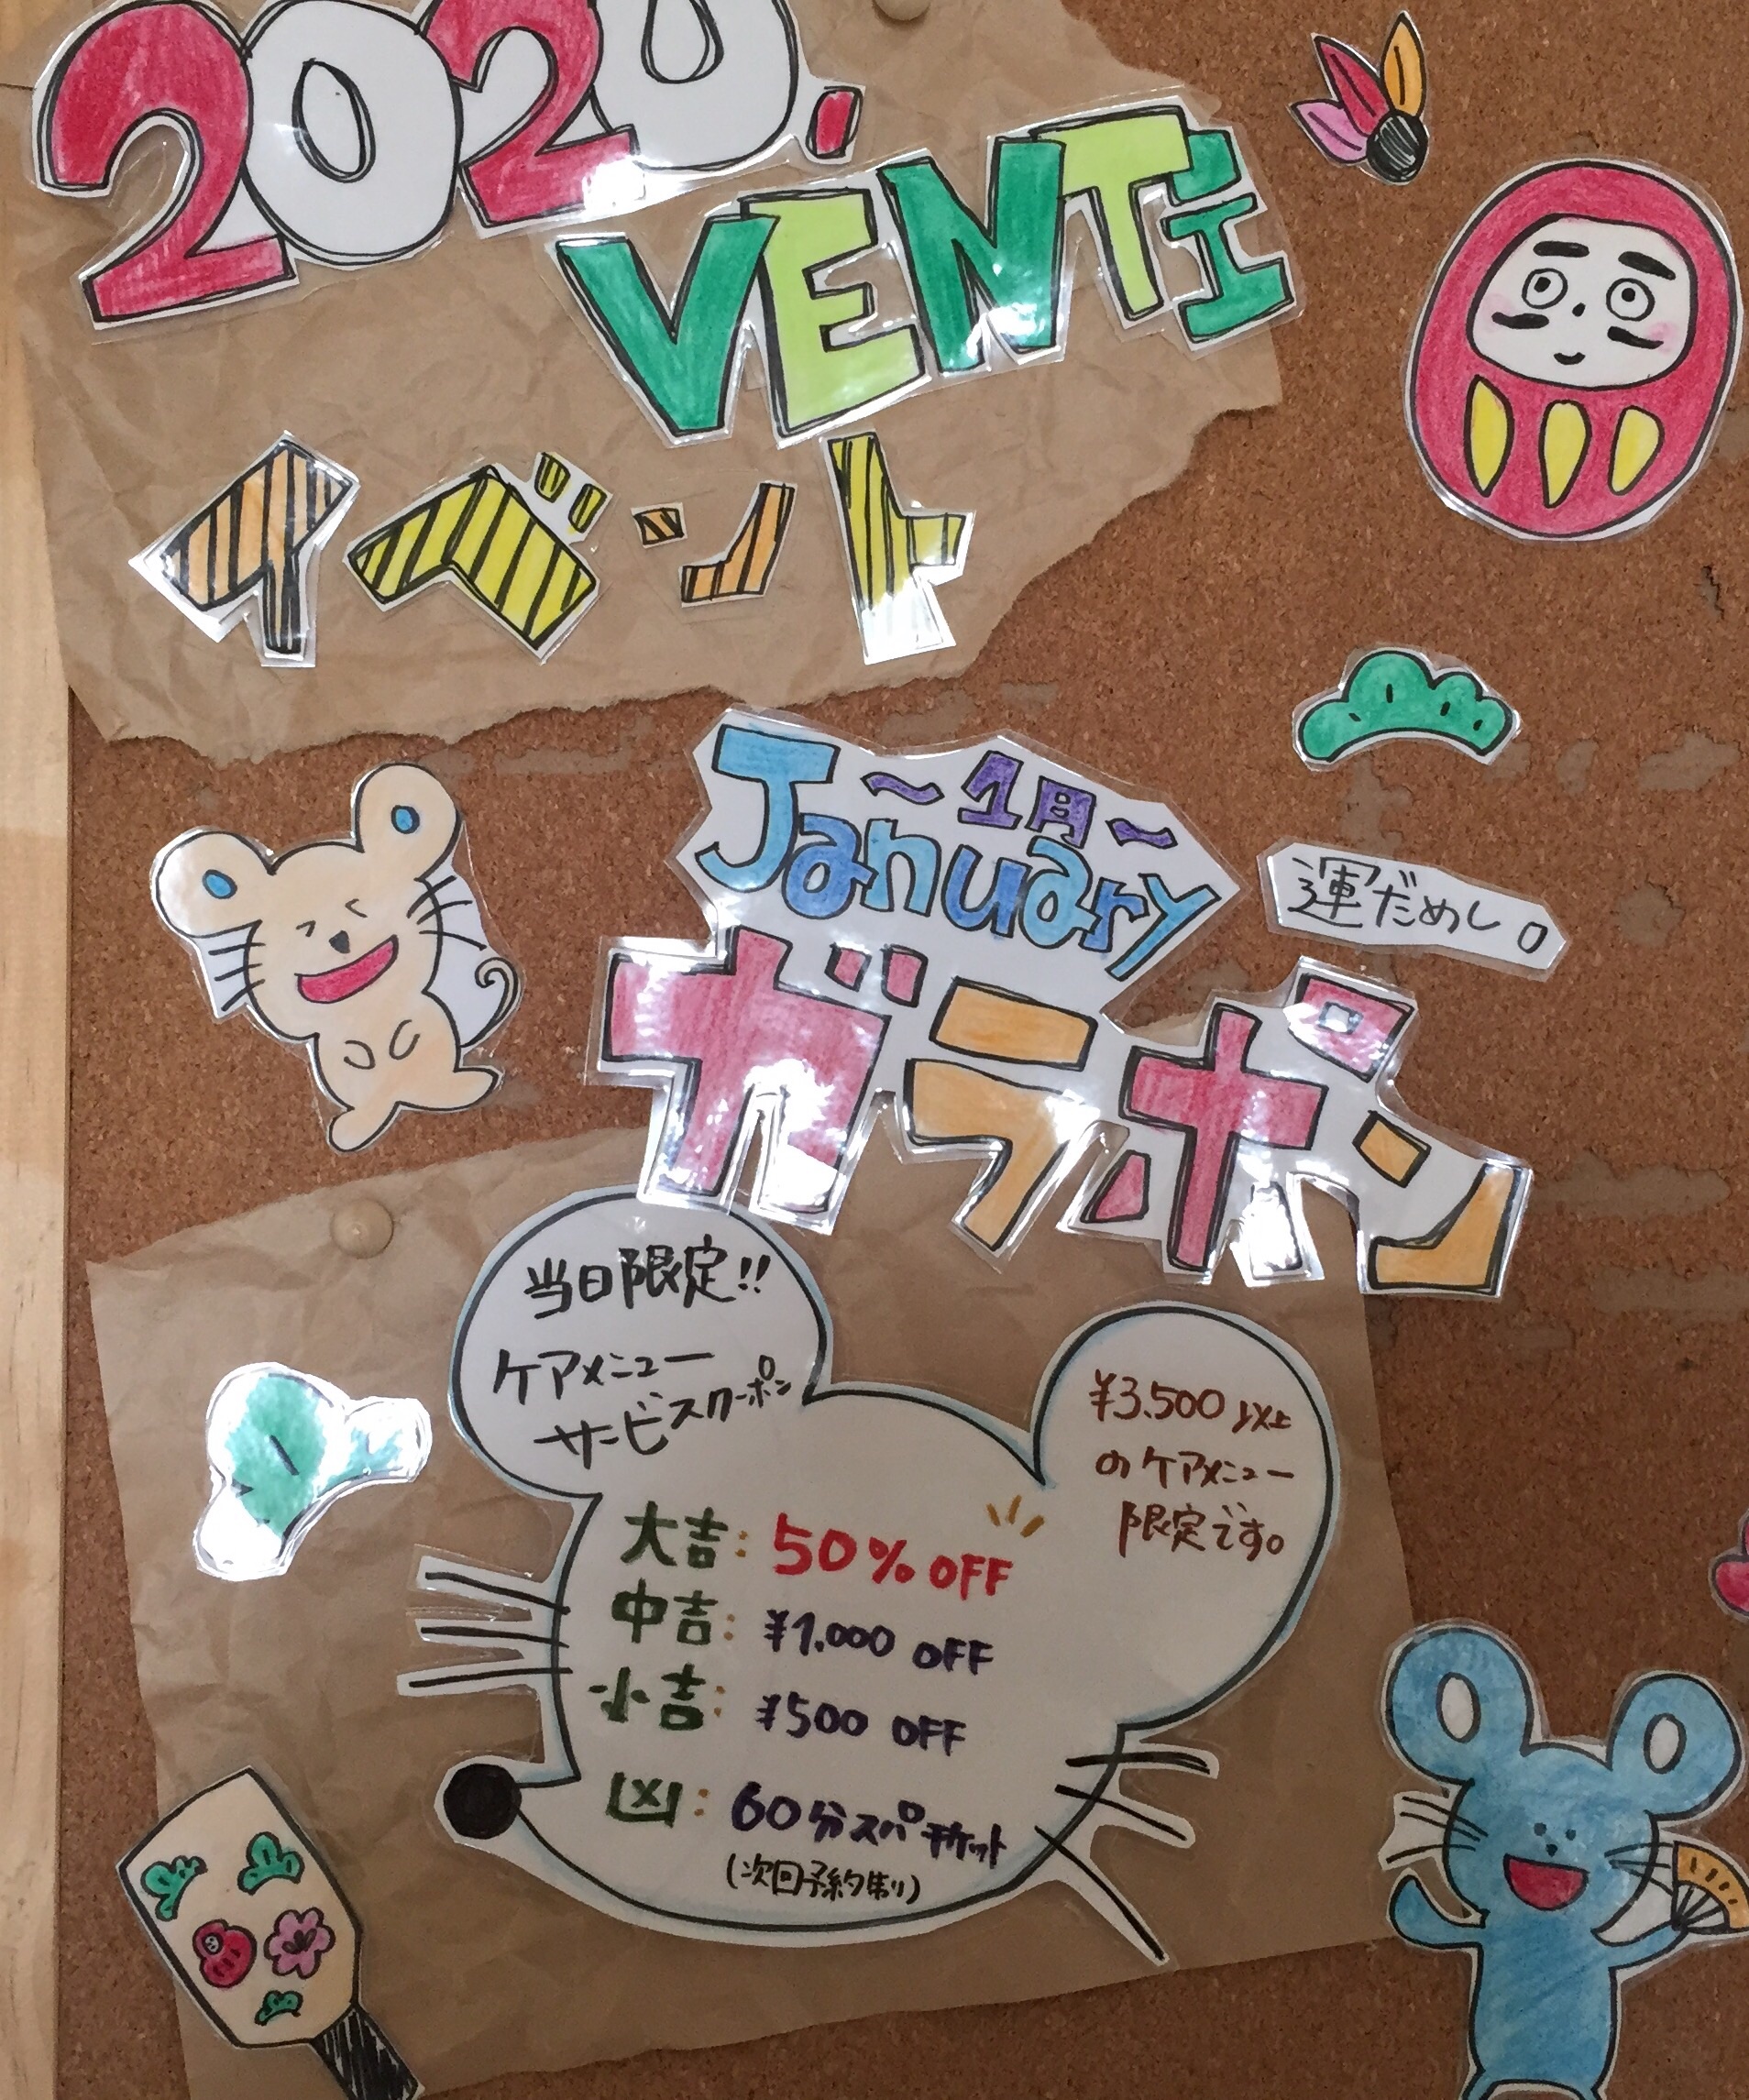 2020.
VENTI
イベント
～1月～
January
運だめし。
ガラポン
当日限定!!
ケアメニュー
サービスクーポン
¥3.500以上
のケアメニュー
限定です。
大吉: 50% OFF
中吉: ¥1.000 OFF
小吉: ¥500 OFF
凶: 60分スパチケット
(次回予約制り)